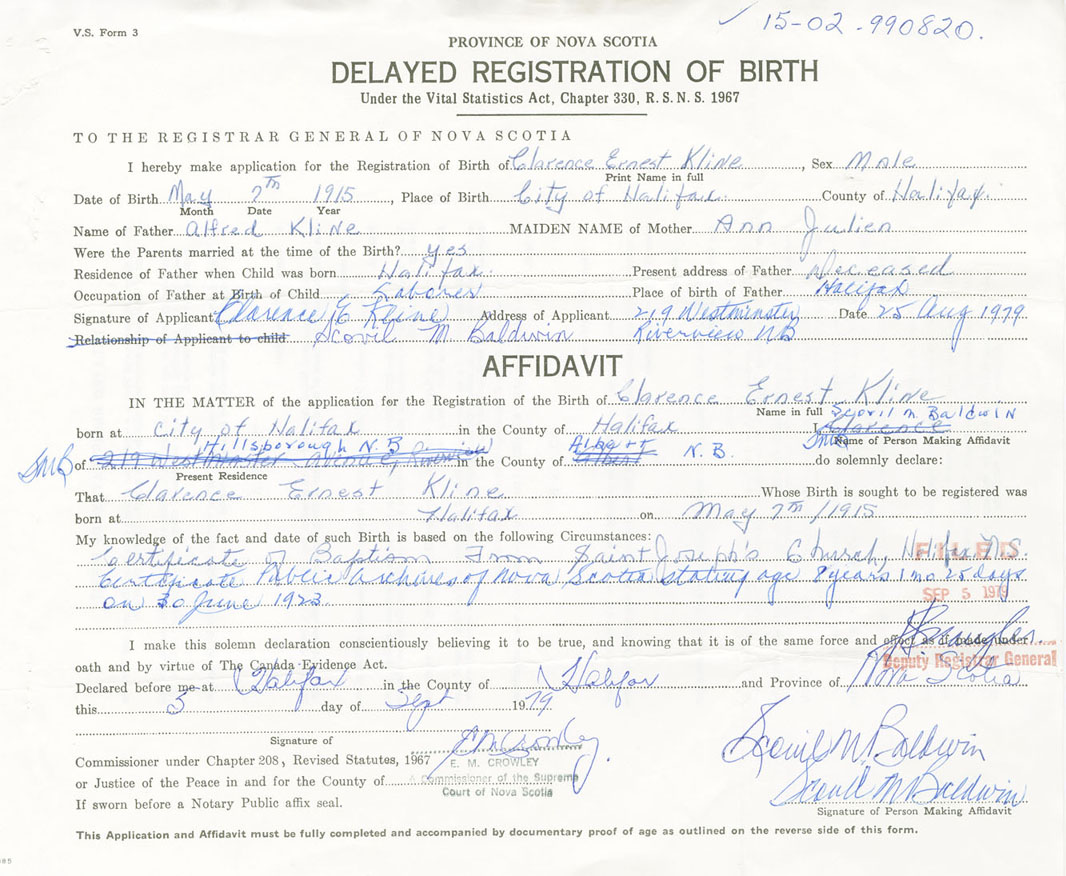 V.S. Form 3
15-02-990820.
PROVINCE OF NOVA SCOTIA
DELAYED REGISTRATION OF BIRTH
Under the Vital Statistics Act, Chapter 330, R. S. N. S. 1967
TO THE REGISTRAR GENERAL OF NOVA SCOTIA
I hereby make application for the Registration of Birth of Clarence Ernest Kline, Sex Male
Print Name in full
Date of Birth May 7th 1915, Place of Birth City of Halifax County of Halifax
Month Date Year
Name of Father Alfred Kline MAIDEN NAME of Mother Ann Julien
Were the Parents married at the time of the Birth? yes
Residence of Father when Child was born Halifax. Present address of Father Deceased
Occupation of Father at Birth of Child Laborer Place of birth of Father Halifax
Signature of Applicant Clarence E Kline Address of Applicant 219 Westminster Date 25 Aug 1979
Relationship of Applicant to child Scovil M Baldwin Riverview NB
AFFIDAVIT
IN THE MATTER of the application for the Registration of the Birth of Clarence Ernest Kline
Name in full Scovil M. Baldwin
born at City of Halifax in the County of Halifax I Clarence
SMB Name of Person Making Affidavit
Hillsborough N.B Albert
SMB of 219 Westminster in the County of Albert N.B. do solemnly declare:
Present Residence
That Clarence Ernest Kline Whose Birth is sought to be registered was
born at Halifax on May 7th / 1915
My knowledge of the fact and date of such Birth is based on the following Circumstances:
Certificate of Baptism From Saint Joseph's Church, Halifax N.S
FILED
Certificate Public Archives of Nova Scotia stating age 8 years 1 mo 25 days
on 30 June 1923.
SEP 5 1979
I make this solemn declaration conscientiously believing it to be true, and knowing that it is of the same force and effect as if made under
oath and by virtue of The Canada Evidence Act.
Deputy Registrar General
Declared before me at Halifax in the County of Halifax and Province of Nova Scotia
this 5 day of Sept 1979
Signature of
Commissioner under Chapter 208, Revised Statutes, 1967
E. M. CROWLEY
or Justice of the Peace in and for the County of
A Commissioner of the Supreme
Court of Nova Scotia
If sworn before a Notary Public affix seal.
Scovil M. Baldwin
Scovil M Baldwin
Signature of Person Making Affidavit
This Application and Affidavit must be fully completed and accompanied by documentary proof of age as outlined on the reverse side of this form.